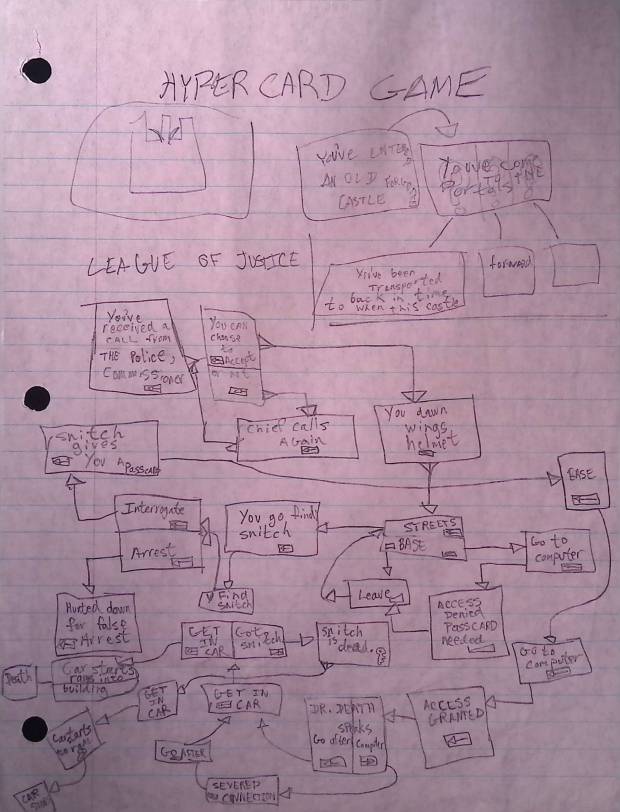 HYPER CARD GAME
YOU'VE ENTER
AN OLD
CASTLE
You've come
TO THE
Portals
LEAGUE OF JUSTICE
You've been
Transported
to back in time
to when this castle
forward
You've
received a
CALL from
THE POLICE,
Commissioner
YOU CAN
choose
to
Accept
or not
Chief calls
Again
You dawn
wings
helmet
Snitch
gives
You A Passcard
BASE
Interrogate
Arrest
You go find
snitch
STREETS
BASE
Go to
computer
Find
snitch
Leave
Hunted down
for false
Arrest
GET
IN
CAR
Go to
snitch
Snitch
is dead.
ACCESS
Denied
PASSCARD
needed
Go to
computer
Death
Car starts
into
building
GET
IN
CAR
GET IN
CAR
DR. DEATH
speaks
Go after
Computer
ACCESS
GRANTED
Car starts
GO AFTER
SEVERED
CONNECTION
CAR